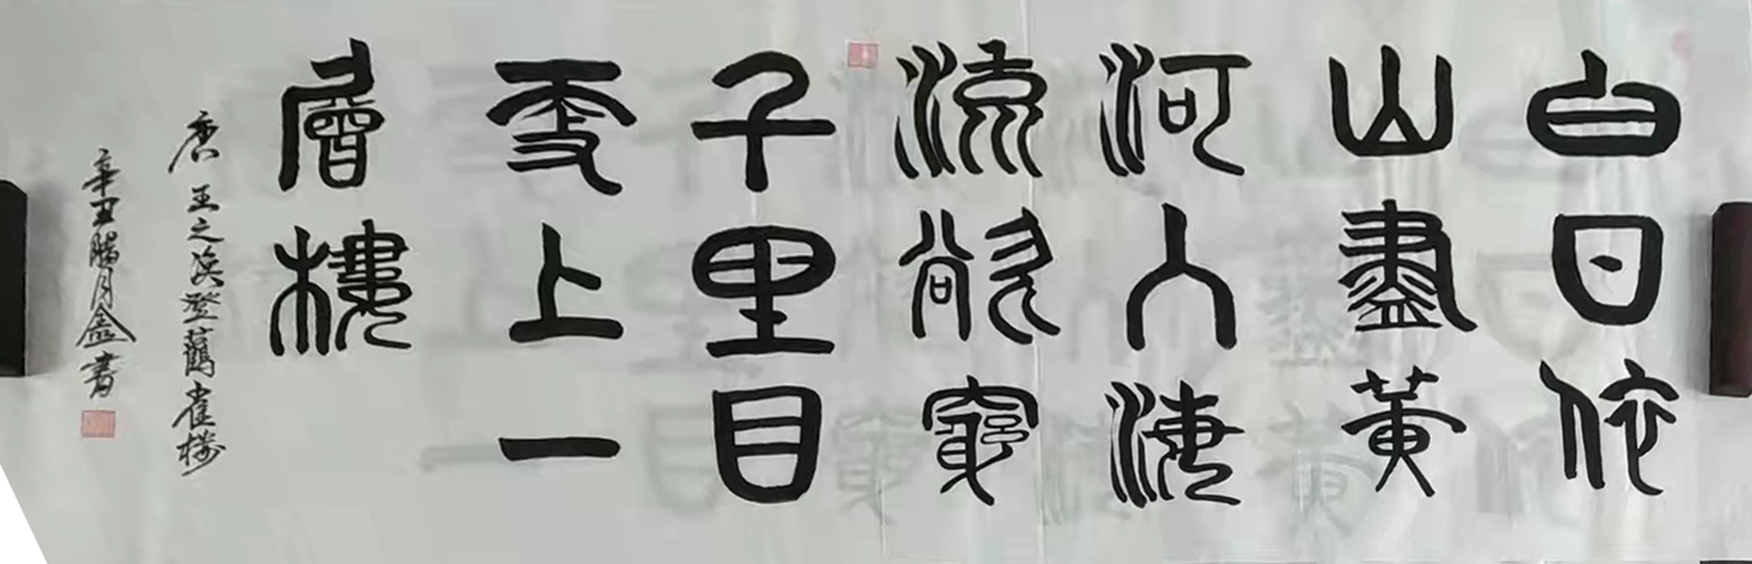 白日依
山盡黄
河入海
流欲窮
千里目
更上一
層樓
唐王之渙登鸛雀樓
辛丑腊月金書